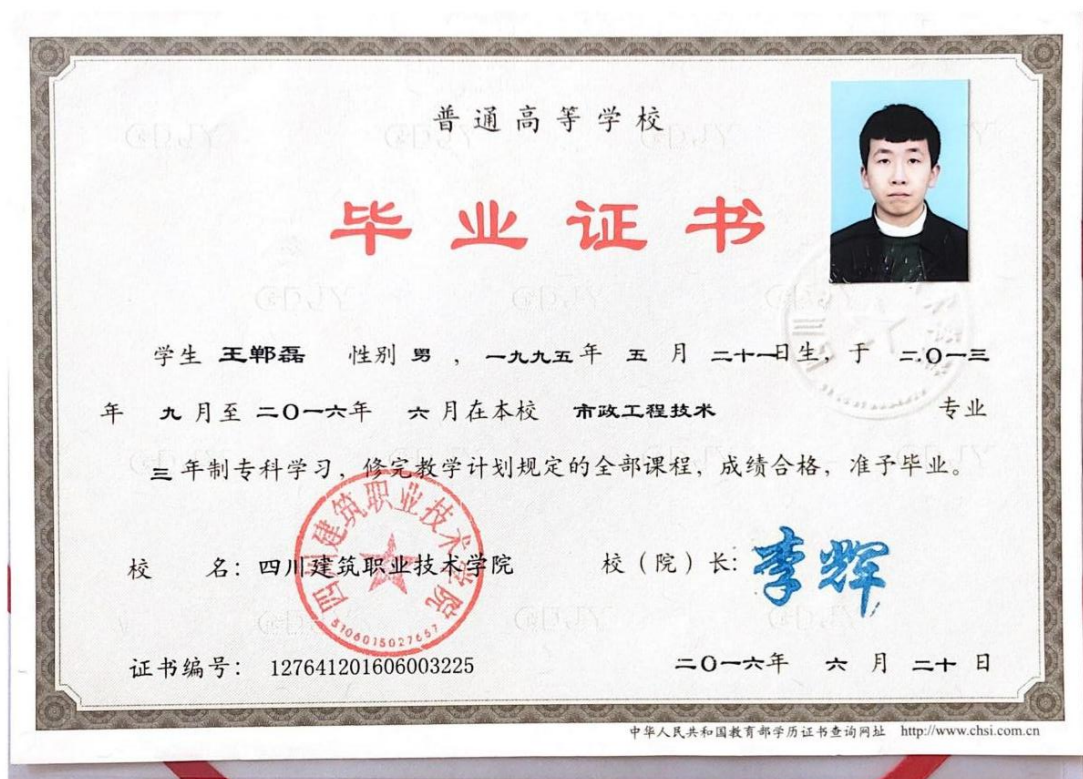 普通高等学校
毕业证书
学生 王郸磊 性别 男 ，一九九五年 五 月 二十一日生，于 二〇一三
年 九 月至 二〇一六年 六 月在本校 市政工程技术 专业
三 年制专科学习，修完教学计划规定的全部课程，成绩合格，准予毕业。
校 名：四川建筑职业技术学院 校（院）长：李辉
四川建筑职业技术学院
5106015027657
证书编号： 127641201606003225 二〇一六年 六 月 二十 日
中华人民共和国教育部学历证书查询网址 http://www.chsi.com.cn